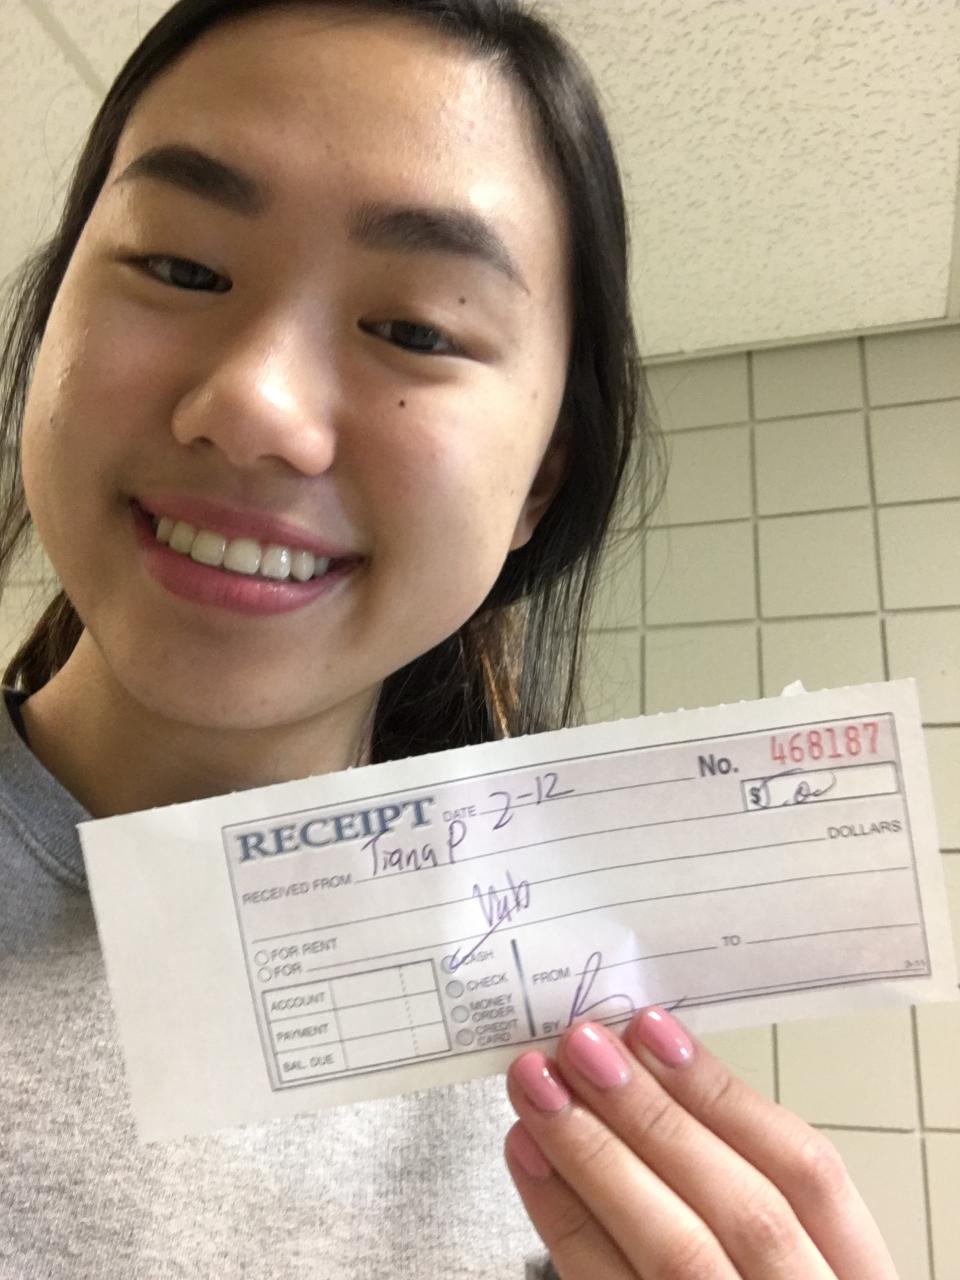 No. 468187
RECEIPT DATE 2-12 $
RECEIVED FROM Tiana P
DOLLARS
FOR RENT
FOR
ACCOUNT
PAYMENT
BAL. DUE
CASH
CHECK
MONEY ORDER
CREDIT CARD
FROM TO
BY
3-11